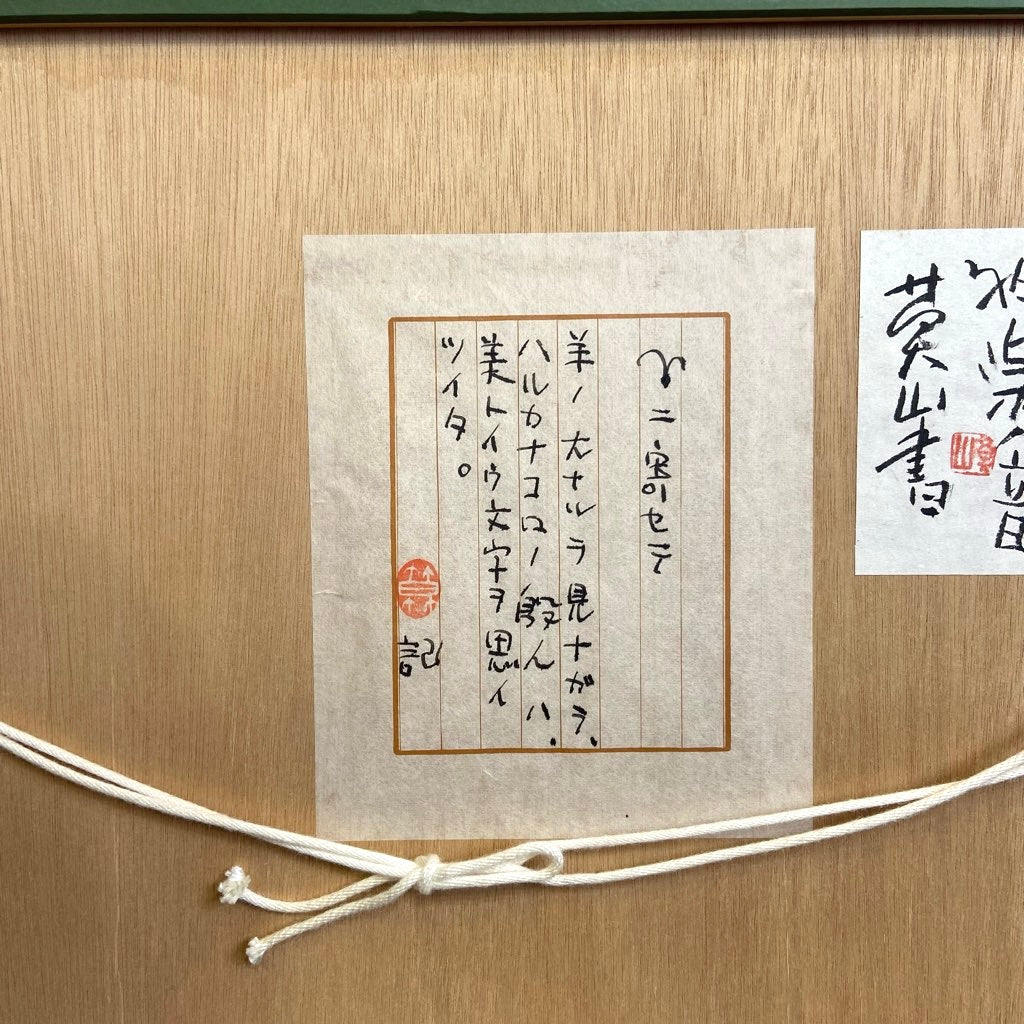 莫山書
ニ寄セテ
羊ノ大ナルヲ見ナガラ、
ハルカナコロノ殷人ハ、
美トイウ文字ヲ思イ
ツイタ。
記